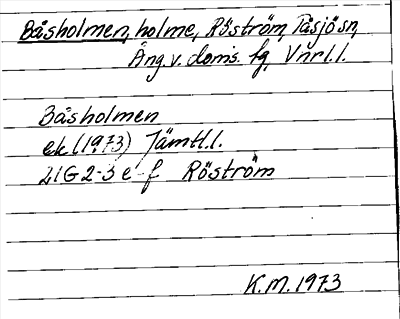 Båsholmen, holme, Röström, Tåsjö sn,
Ång v. doms. fg, Vnrl. l.
Båsholmen
ek (1973) Jämtl. l.
21G 2-3 e-f Röström
K.M. 1973